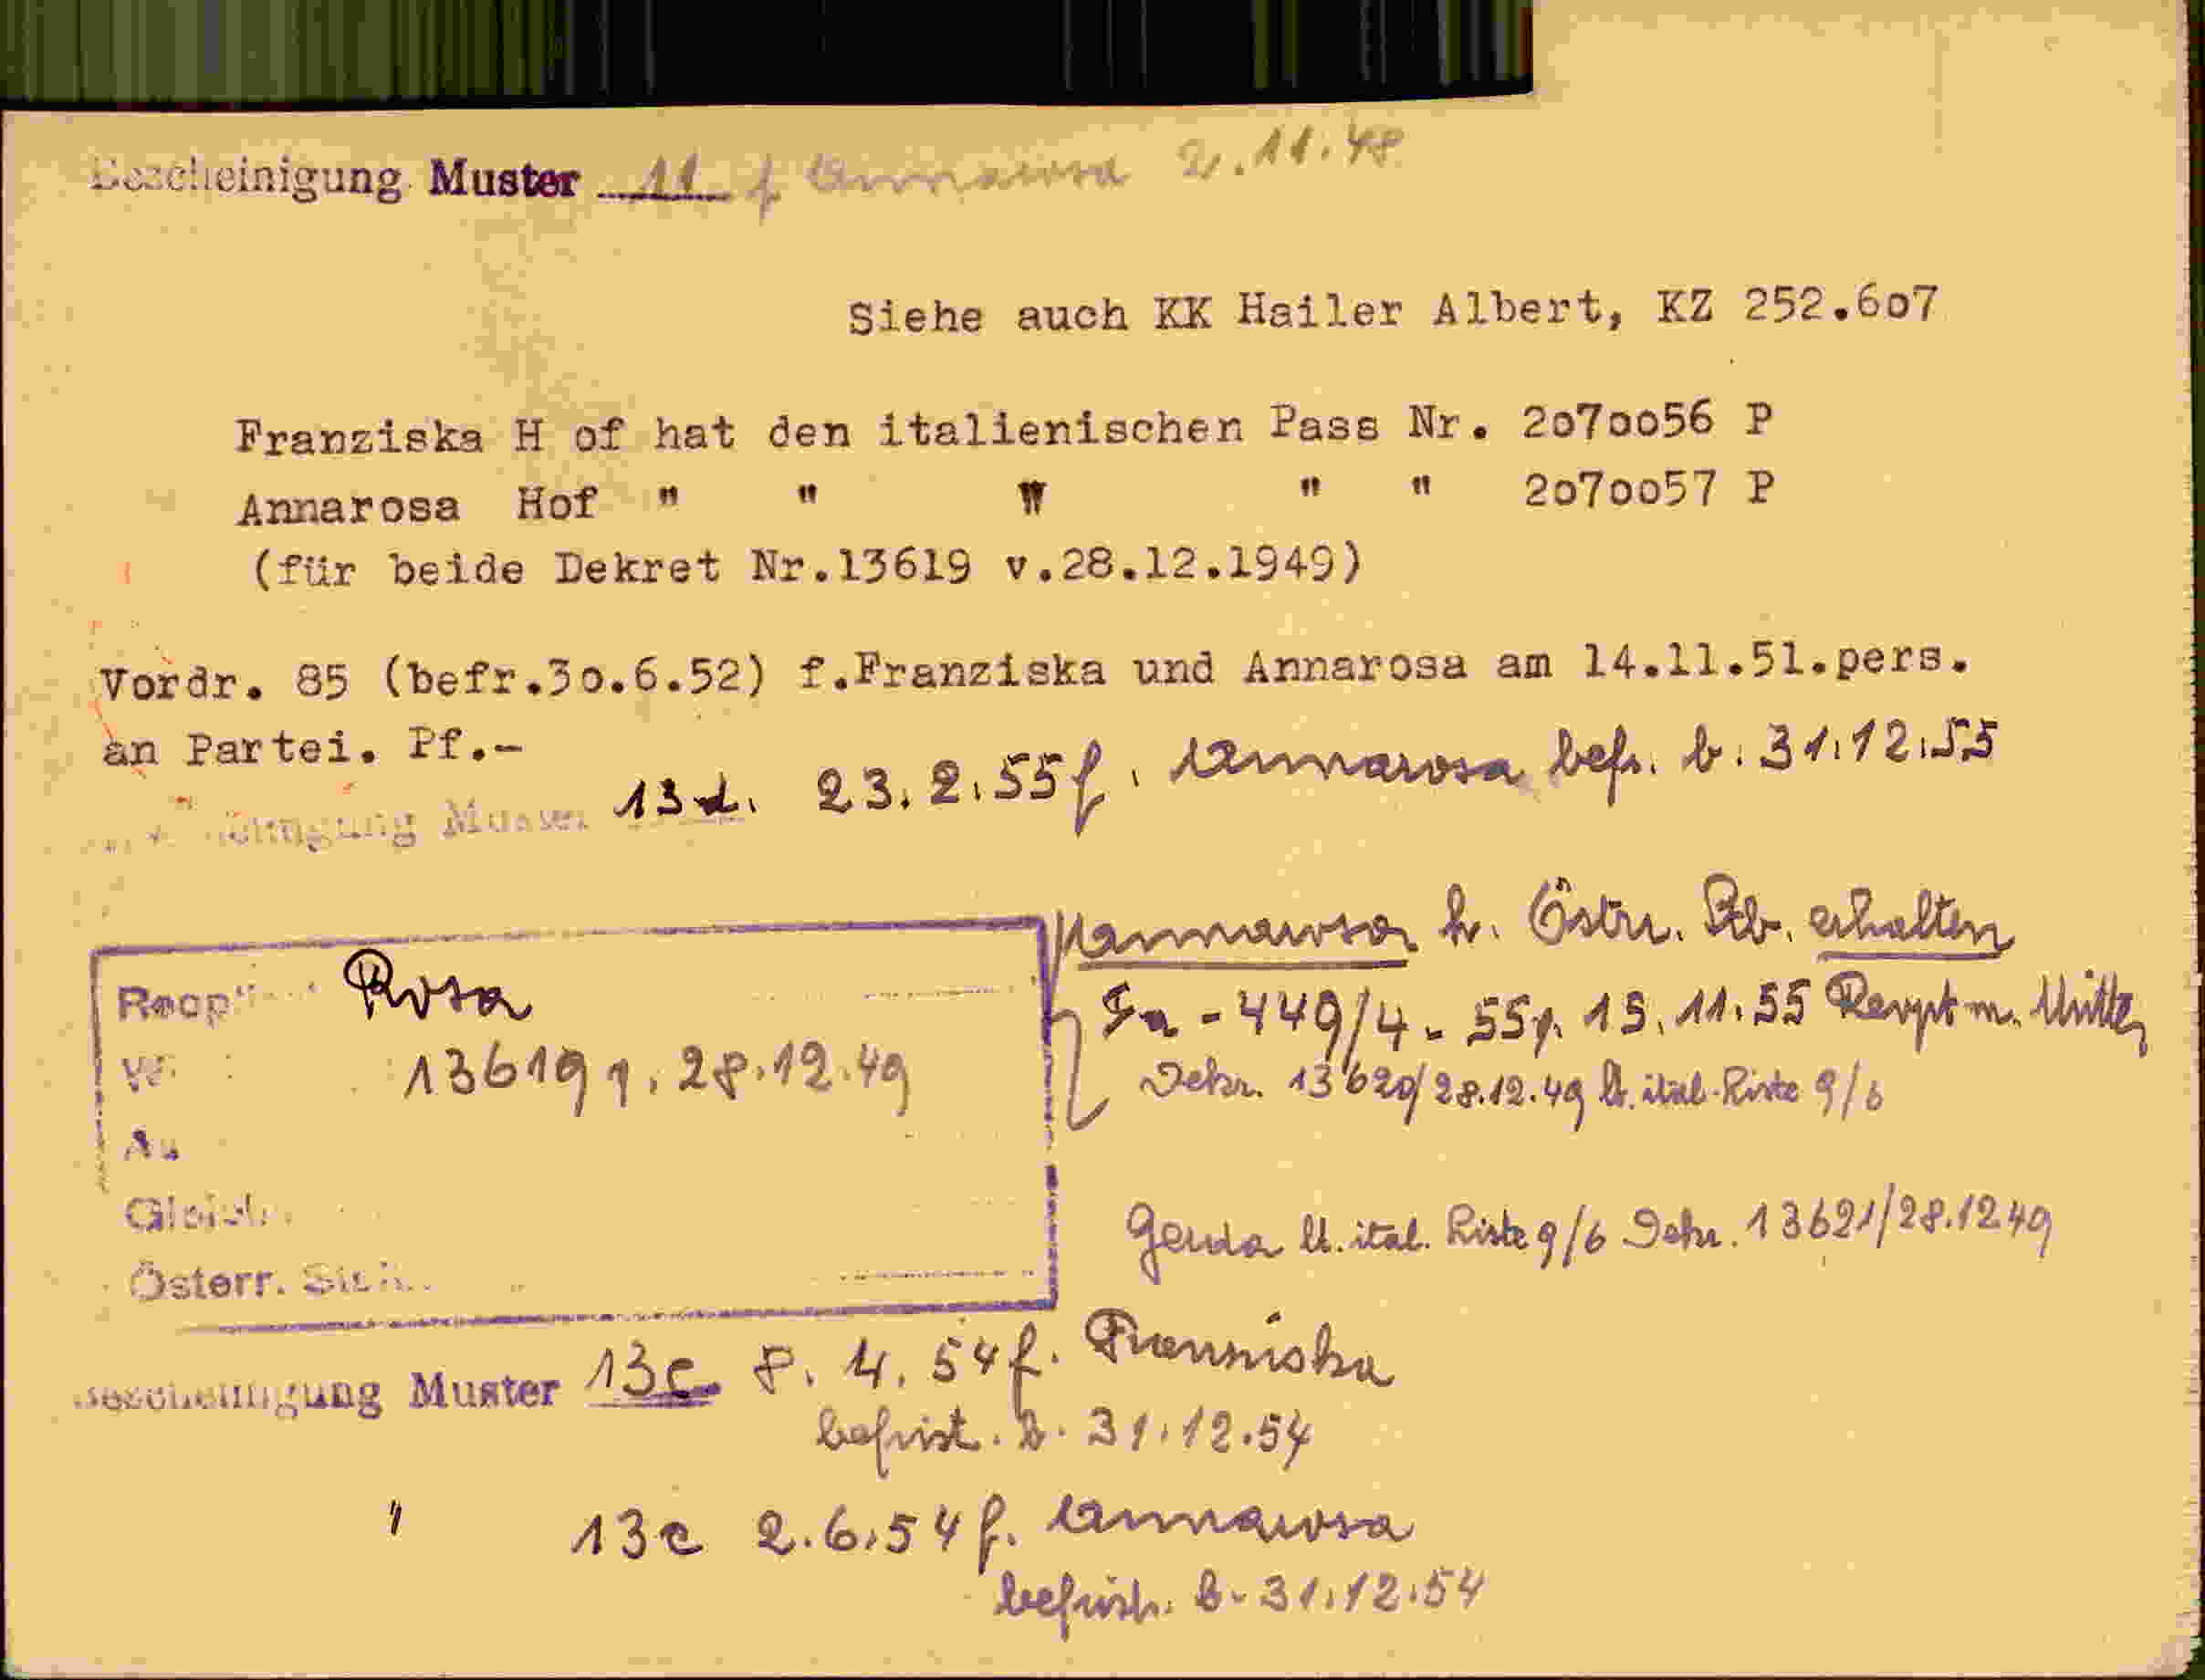 Bescheinigung Muster 11 f Annarosa 2.11.48
Siehe auch KK Hailer Albert, KZ 252.607
Franziska H of hat den italienischen Pass Nr. 2070056 P
Annarosa Hof " " " " " 2070057 P
(für beide Dekret Nr.13619 v.28.12.1949)
Vordr. 85 (befr.30.6.52) f.Franziska und Annarosa am 14.11.51.pers.
an Partei. Pf.-
Bescheinigung Muster 13d. 23.2.55 f. Annarosa befr. b. 31.12.55
Annarosa h. Östrr. Stb. erhalten
Rosa
Ia - 449/4 - 55 v. 15.11.55 m.
13619 v. 28.12.49
Dekr. 13620/28.12.49 lt. ital. Liste 9/6
Österr.
Gerda lt. ital. Liste 9/6 Dekr. 13621/28.12.49
Bescheinigung Muster 13c 8.4.54 f. Franziska
befrist. b. 31.12.54
" 13c 2.6.54 f. Annarosa
befrist. b. 31.12.54